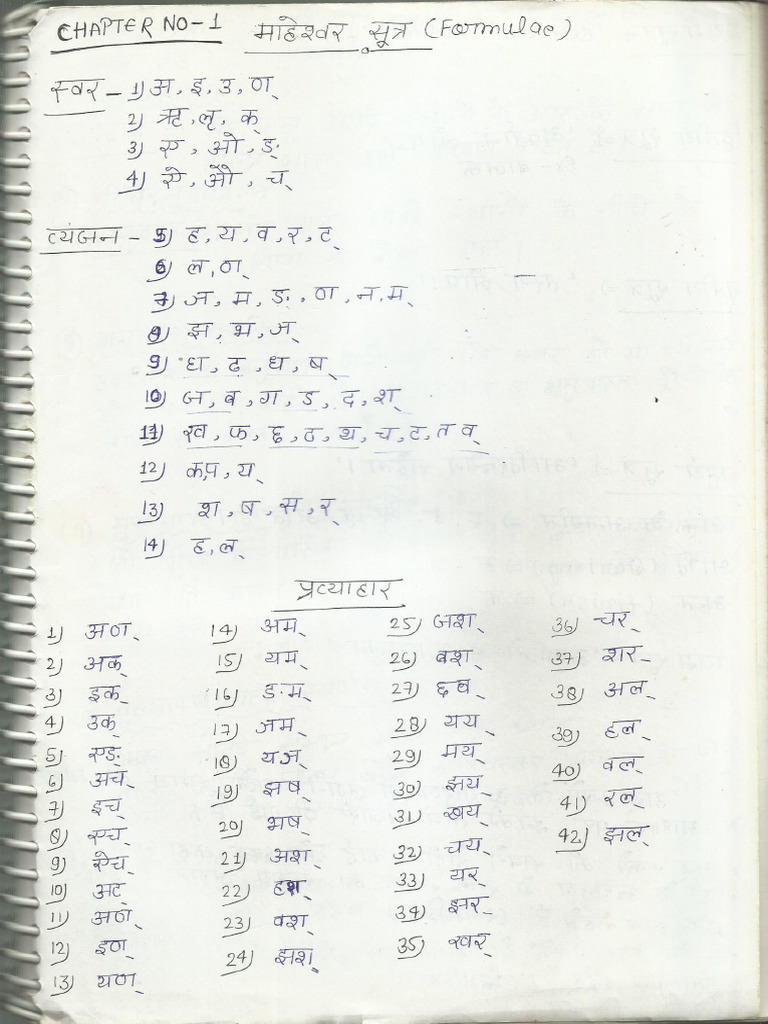 CHAPTER NO-1 माहेश्वर सूत्र (Formulae)
स्वर - 1) अ, इ, उ, ण्
2) ऋ, लृ, क्
3) ए, ओ, ङ्
4) ऐ, औ, च्
व्यंजन - 5) ह, य, व, र, ट्
6) ल, ण्
7) ञ, म, ङ, ण, न, म्
8) झ, भ, ञ्
9) घ, ढ, ध, ष्
10) ज, ब, ग, ड, द, श्
11) ख, फ, छ, ठ, थ, च, ट, त व्
12) क, प, य्
13) श, ष, स, र्
14) ह, ल्
प्रत्याहार
1) अण्
2) अक्
3) इक्
4) उक्
5) एङ्
6) अच्
7) इच्
8) एच्
9) ऐच्
10) अट्
11) अण्
12) इण्
13) यण्
14) अम्
15) यम्
16) ङम्
17) ञम्
18) यञ्
19) झष्
20) भष्
21) अश्
22) हश्
23) वश्
24) झश्
25) जश्
26) बश्
27) छव्
28) यय्
29) मय्
30) झय्
31) खय्
32) चय्
33) यर्
34) झर्
35) खर्
36) चर्
37) शर्
38) अल्
39) हल्
40) वल्
41) रल्
42) झल्